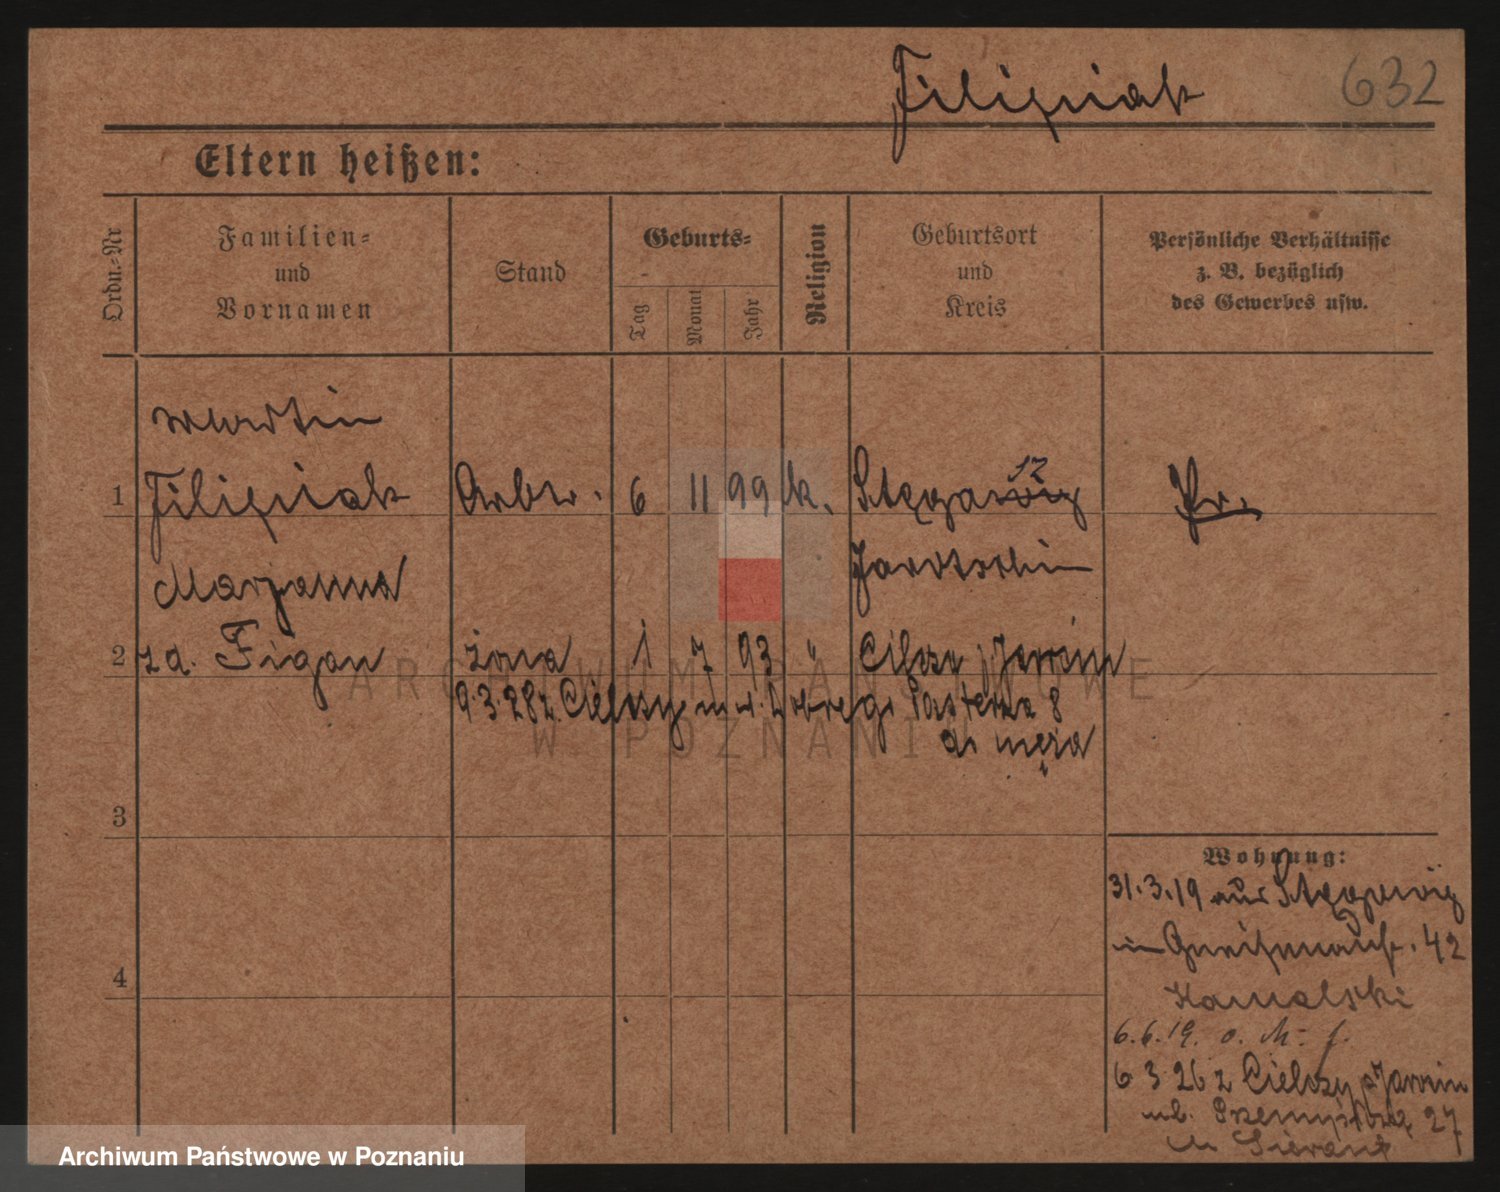 Filipiak 632
Eltern heißen:
Ordn.-Nr
Familien-
und
Vornamen
Stand
Geburts-
Tag
Monat
Jahr
Religion
Geburtsort
und
Kreis
Persönliche Verhältnisse
z. B. bezüglich
des Gewerbes usw.
Martin
1 Filipiak Arbtr. 6 11 99 k. Pr.
Jarotschin
Marjanna
2 zd. Figan żona 1 7 93 " Cilcza Jarocin
9.3.28 z. Cielczy m u. Dobrego Pasterza 8
do męża
3
4
Wohnung:
31.3.19 aus
in Gneisenaustr. 42
Kowalski
6.6.19. o. M. f.
6 3 26 z Cielczy p Jarocin
ul. Przemysłowa 27
u
ARCHIWUM PAŃSTWOWE
W POZNANIU
Archiwum Państwowe w Poznaniu